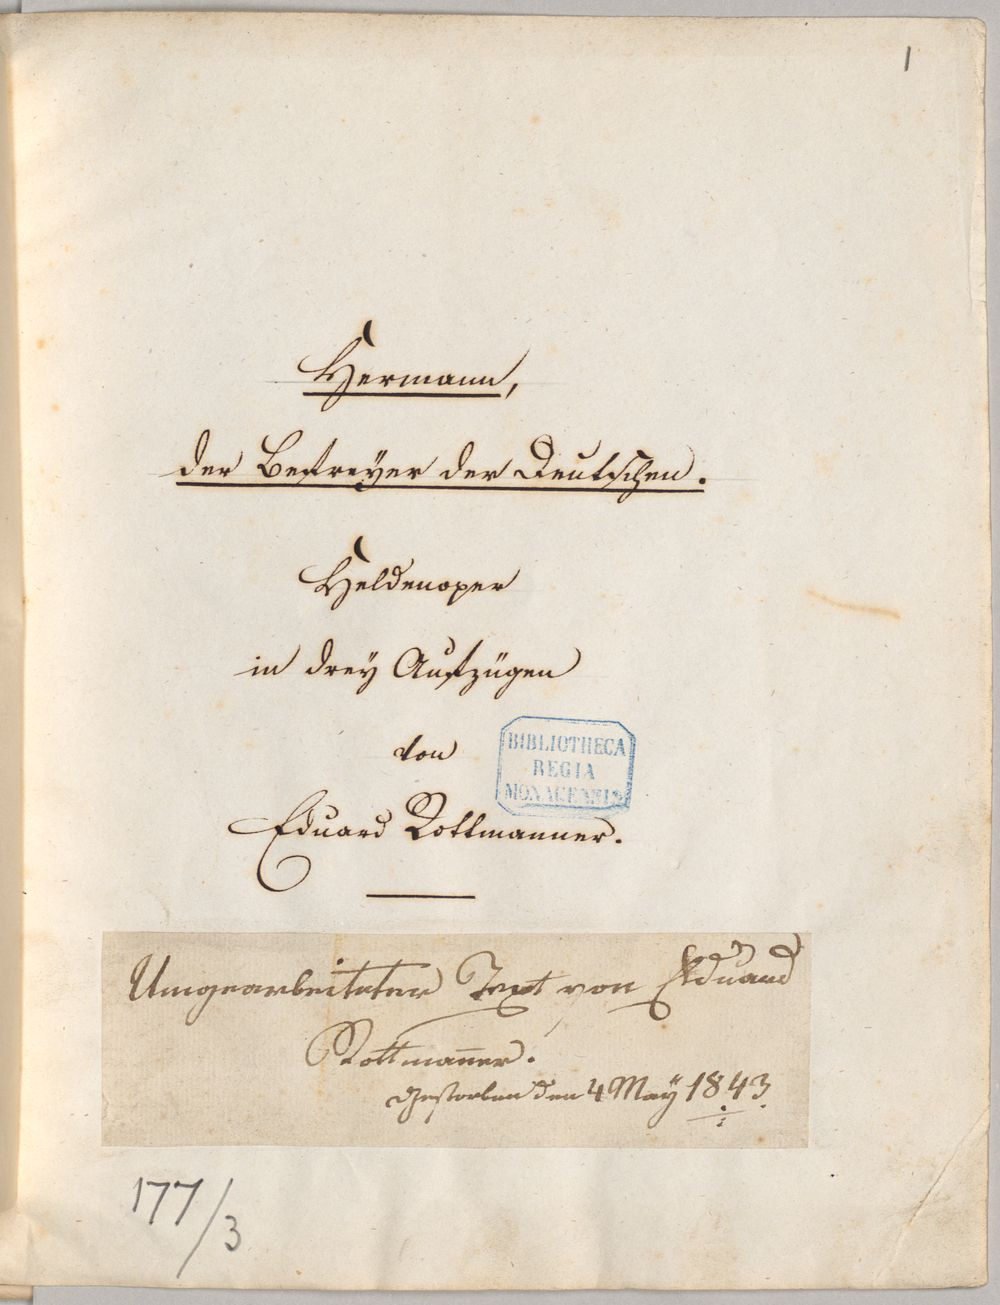 1
Hermann,
der Befreÿer der Deutschen.
Heldenoper
in dreÿ Aufzügen
von
BIBLIOTHECA
REGIA
MONACENSIS
Eduard Rottmanner.
Umgearbeiteter Text von Eduard
Rottman̄er.
Gestorben den 4 Maÿ 1843
177/3